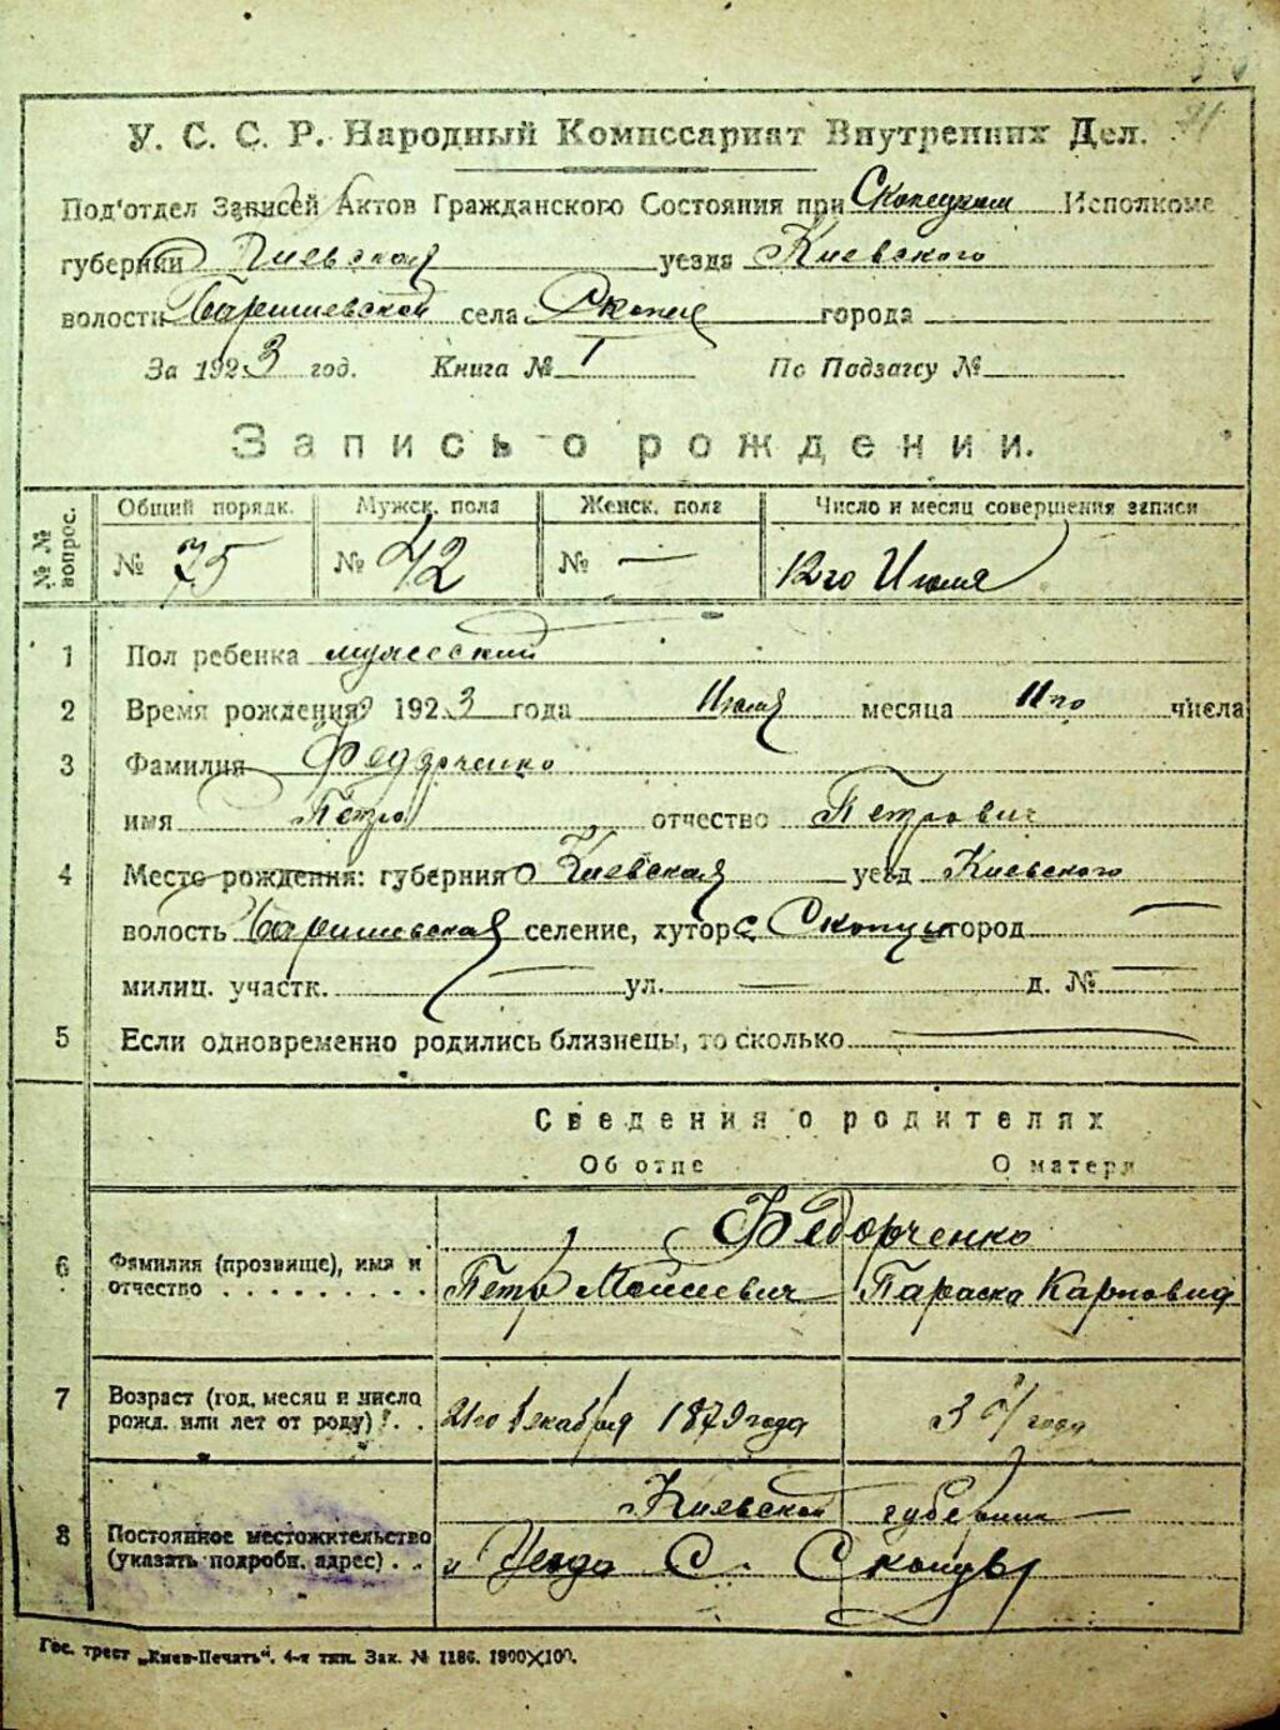 У. С. С. Р. Народный Комиссариат Внутренних Дел.
Под'отдел Записей Актов Гражданского Состояния при Скопецком Исполкоме
губернии Киевской уезда Киевского
волости Барышевской села Скопце города
За 1923 год. Книга № 1 По Подзагсу №
Запись о рождении.
№№ вопрос. Общий порядк. Мужск. пола Женск. пола Число и месяц совершения записи
№ 75 № 42 № — 12го Июля
1 Пол ребенка мужеский
2 Время рождения 1923 года Июля месяца 11го числа
3 Фамилия Федорченко
имя Петро отчество Петрович
4 Место рождения: губерния Киевская уезд Киевского
волость Баришевская селение, хутор с Скопцы город —
милиц. участк. — ул. — д. № —
5 Если одновременно родились близнецы, то сколько —
Сведения о родителях
Об отце О матери
Федорченко
6 Фамилия (прозвище), имя и
отчество . . . . . . . . . Петро Моисеевич Параска Карповна
7 Возраст (год, месяц и число
рожд. или лет от роду) . . 21го декабря 1879 года года
Киевской губернии
8 Постоянное местожительство
(указать подробн. адрес) . . и Уезда С. Скопцы
Гос. трест „Киев-Печать“. 4-я тип. Зак. № 1186. 1900×100.